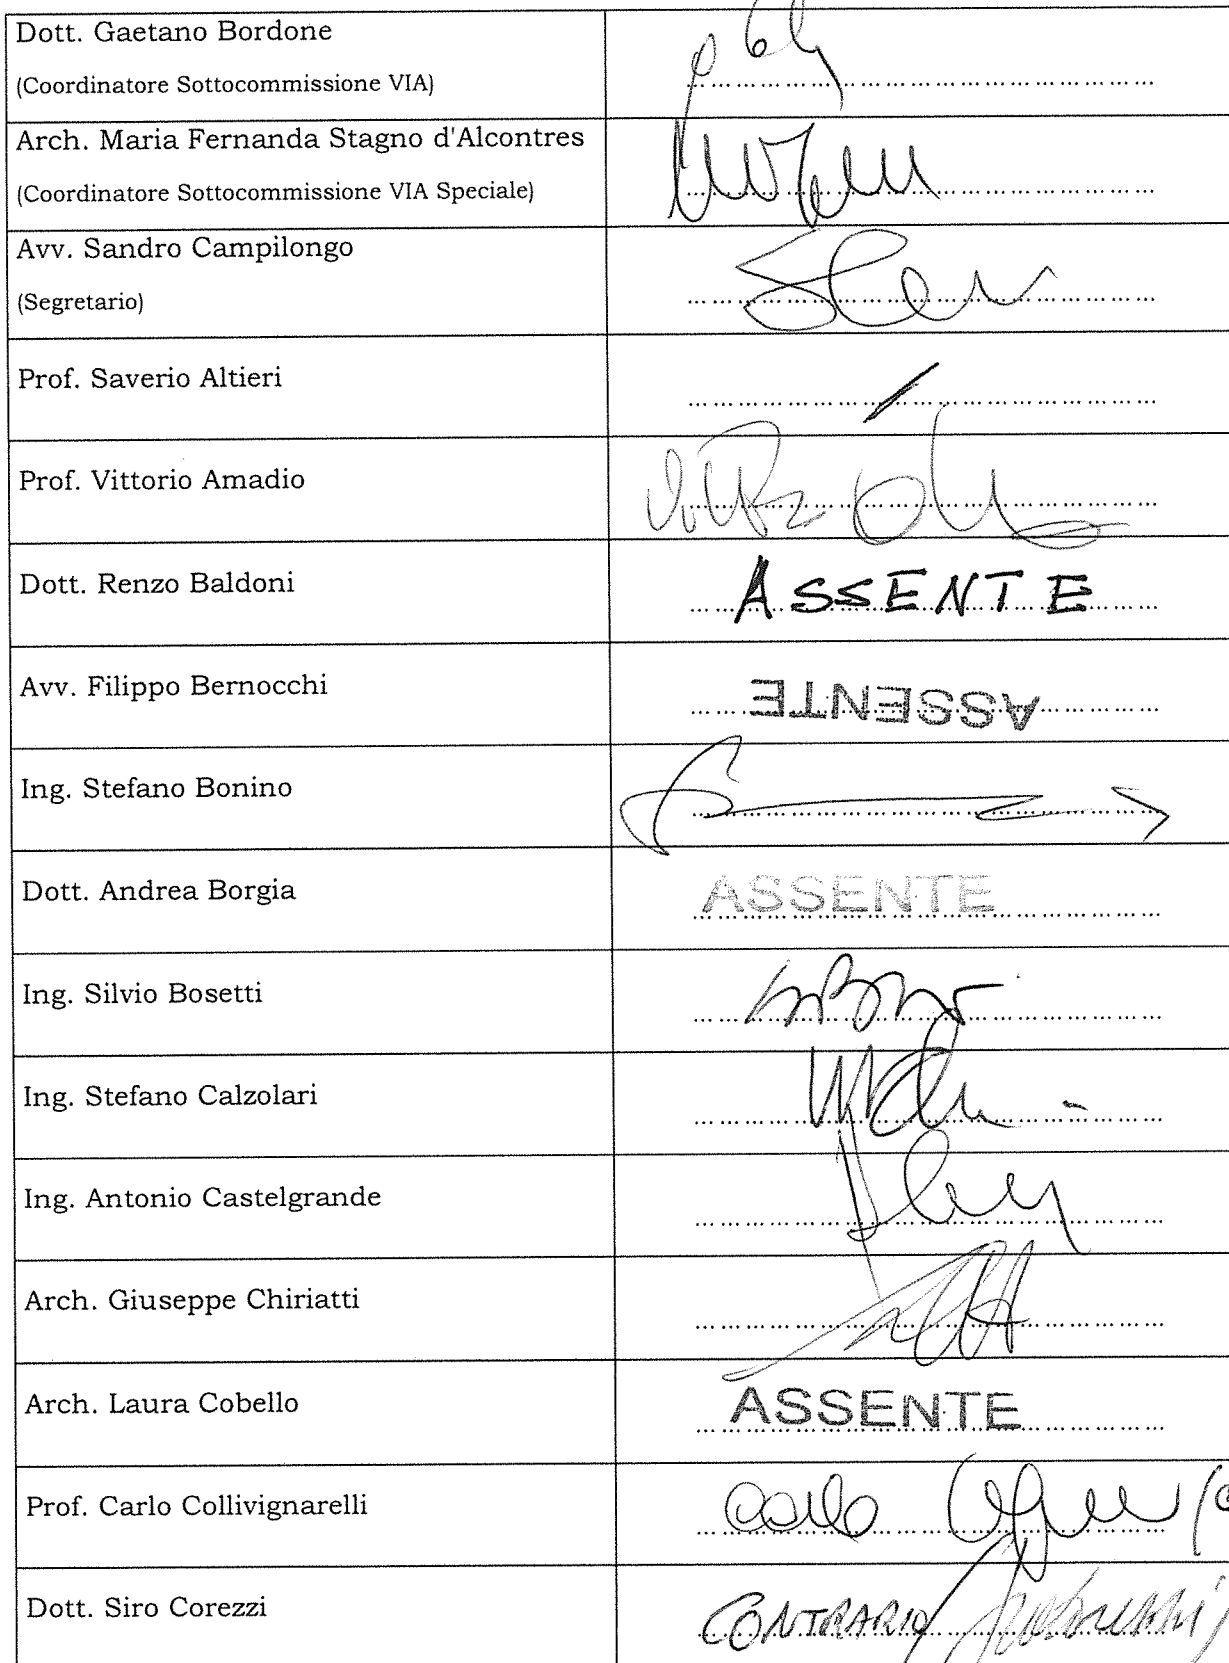 Dott. Gaetano Bordone
(Coordinatore Sottocommissione VIA)
Arch. Maria Fernanda Stagno d'Alcontres
(Coordinatore Sottocommissione VIA Speciale)
Avv. Sandro Campilongo
(Segretario)
Prof. Saverio Altieri
Prof. Vittorio Amadio
Dott. Renzo Baldoni
ASSENTE
Avv. Filippo Bernocchi
ASSENTE
Ing. Stefano Bonino
Dott. Andrea Borgia
ASSENTE
Ing. Silvio Bosetti
Ing. Stefano Calzolari
Ing. Antonio Castelgrande
Arch. Giuseppe Chiriatti
Arch. Laura Cobello
ASSENTE
Prof. Carlo Collivignarelli
Carlo
Dott. Siro Corezzi
CONTRARIO